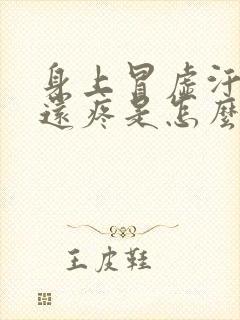 身上冒虛汗
還疼是怎麼
王皮鞋